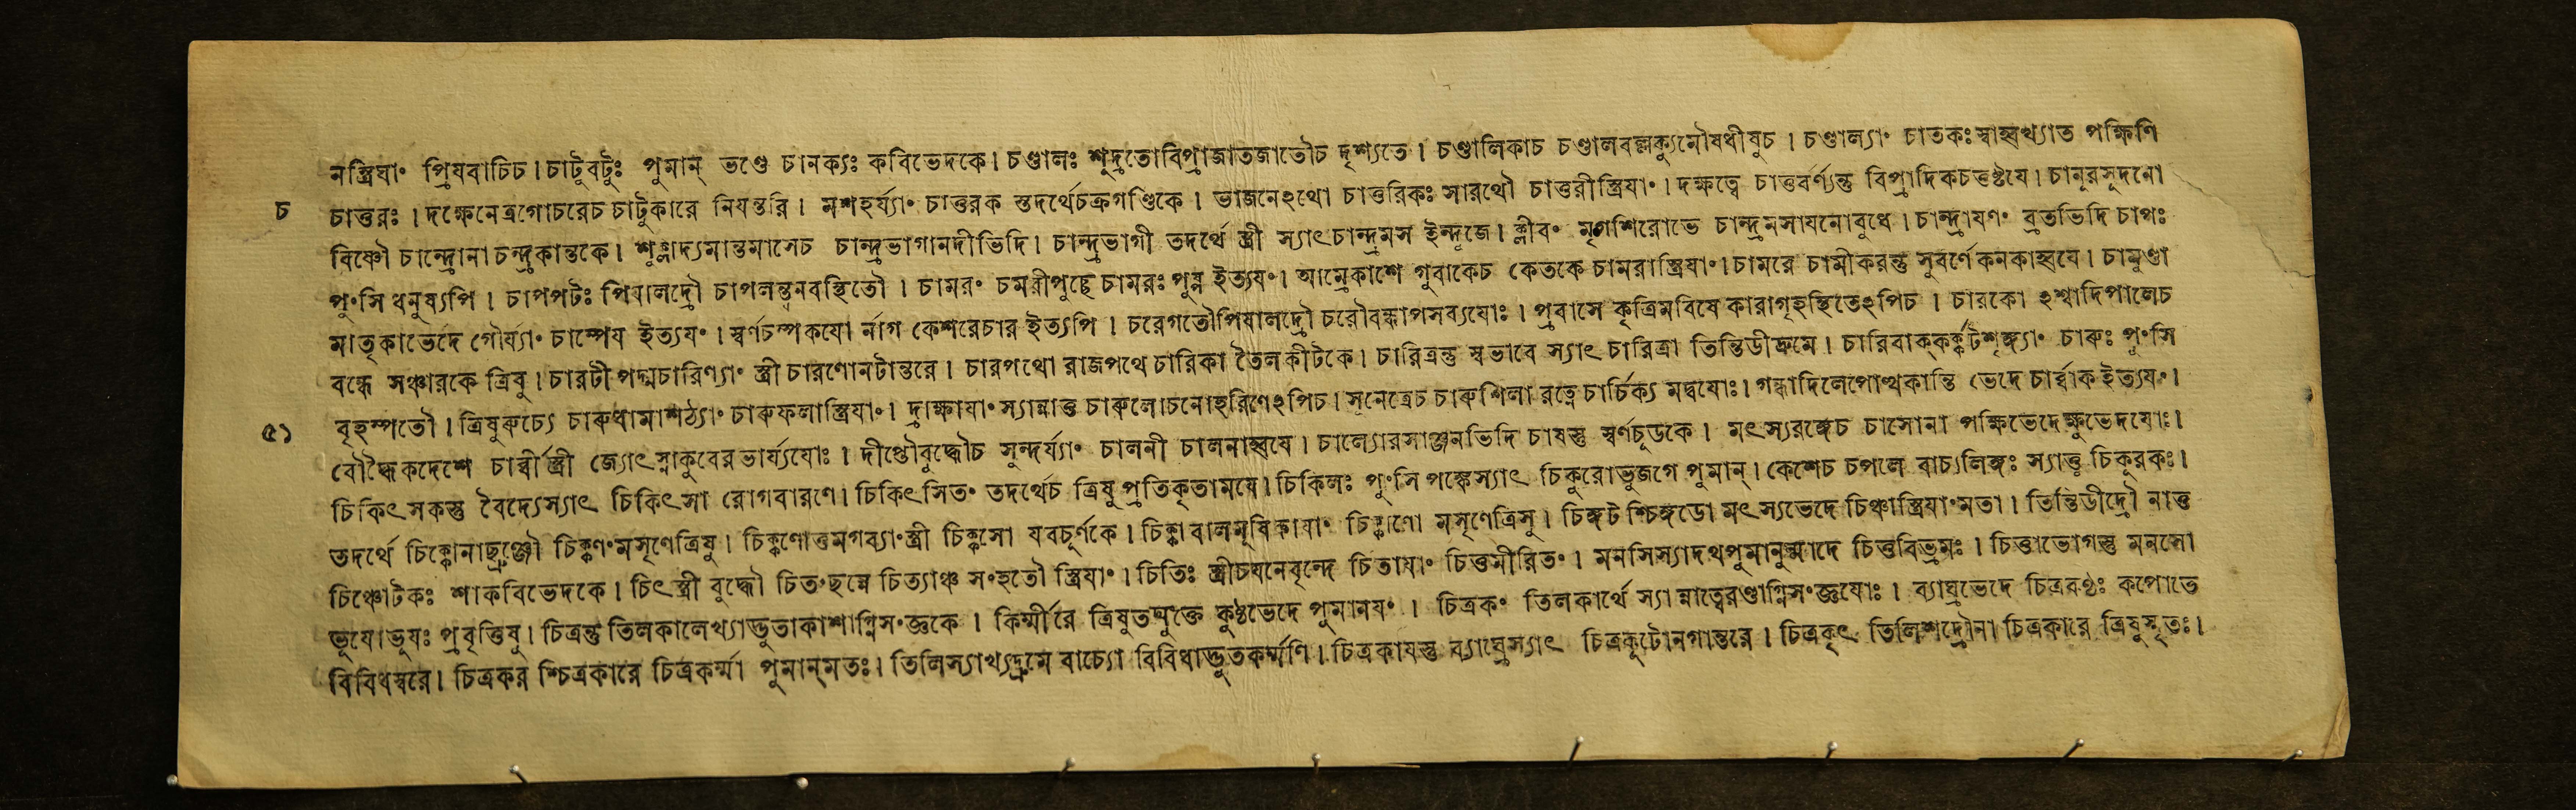 নস্ত্রিযাং প্রিযবাচিচ। চাটুবটুঃ পুমান্ ভণ্ডে চানক্যঃ কবিভেদকে। চণ্ডালঃ শূদ্রতোবিপ্রাজাতজাতৌচ দৃশ্যতে। চণ্ডালিকাচ চণ্ডালবল্লক্যুমৌষধীষুচ। চণ্ডাল্যাং চাতকঃ স্বাহ্বখ্যাত পক্ষিণি
চ চাত্তরঃ। দক্ষেনেত্রগোচরেচ চাটুকারে নিযন্তরি। মশহর্য্যাং চাত্তরক স্তদর্থেচক্রগণ্ডিকে। ভাজনেঽথো চাত্তরিকঃ সারথৌ চাত্তরীস্ত্রিযাং। দক্ষত্বে চাত্তবর্ণ্যন্তু বিপ্রাদিকচত্তষ্টযে। চানূরসূদনো
বিষ্ণৌ চান্দ্রোনা চন্দ্রকান্তকে। শূক্লাদ্যমান্তমাসেচ চান্দ্রভাগানদীভিদি। চান্দ্রভাগী তদর্থে স্ত্রী স্যাৎ চান্দ্রমস ইন্দূজে। ক্লীবং মৃগশিরোভে চান্দ্রনসাযনোবুধে। চান্দ্রাযণং ব্রতভিদি চাপঃ
পুংসি ধনুষ্যপি। চাপপটঃ পিযালদ্রৌ চাপলন্ত্বনবস্থিতৌ। চামরং চমরীপুচ্ছে চামরঃ পুন্ন ইত্যযং। আম্রেকাশে গুবাকেচ কেতকে চামরাস্ত্রিযাং। চামরে চামীকরন্তু সুবর্ণে কনকাহ্বযে। চামুণ্ডা
মাতৃকাভেদে গৌর্য্যাং চাম্পেয ইত্যযং। স্বর্ণচম্পকযো র্নাগ কেশরেচার ইত্যপি। চরেগতৌপিযালদ্রৌ চরৌবক্কাপসব্যযোঃ। প্রবাসে কৃত্রিমবিষে কারাগৃহস্থিতেঽপিচ। চারকো ঽশ্বাদিপালেচ
বন্ধে সঞ্চারকে ত্রিষু। চারটী পদ্মচারিণ্যাং স্ত্রী চারণোনটান্তরে। চারপথো রাজপথে চারিকা তৈলকীটকে। চারিত্রন্তু স্বভাবে স্যাৎ চারিত্রা তিন্তিডীদ্রুমে। চারিবাক্কর্ক্কটশৃঙ্গ্যাং চারুঃ পুংসি
৫১ বৃহস্পতৌ। ত্রিষুরুচ্যে চারুধামাশঠ্যাং চারুফলাস্ত্রিযাং। দ্রাক্ষাযাং স্যান্নাত্ত চারুলোচনোহরিণেঽপিচ। সুনেত্রেচ চারুশিলা রত্নে চার্চিক্য মদ্বযোঃ। গন্ধাদিলেপোত্থকান্তি ভেদে চার্ব্বাক ইত্যযং।
বৌদ্ধৈকদেশে চার্ব্বীস্ত্রী জ্যোৎস্নাকুবেরভার্য্যযোঃ। দীপ্তৌবুদ্ধৌচ সুন্দর্য্যাং চালনী চালনাহ্বযে। চাল্যোরসাঞ্জনভিদি চাষস্তু স্বর্ণচূডকে। মৎস্যরঙ্গেচ চাসোনা পক্ষিভেদেক্ষুভেদযোঃ।
চিকিৎসকস্তু বৈদ্যেস্যাৎ চিকিৎসা রোগবারণে। চিকিৎসিতং তদর্থেচ ত্রিষু প্রতিকৃতামযে। চিকিলঃ পুংসি পঙ্কেস্যাৎ চিকুরোভুজগে পুমান্। কেশেচ চপলে বাচ্যলিঙ্গঃ স্যাত্তূ চিকূরকঃ।
তদর্থে চিক্কোনাছুঞ্জৌ চিক্কণংমসৃণেত্রিষু। চিক্কণোত্তমগব্যাংস্ত্রী চিক্কসো যবচূর্ণকে। চিক্কা বালমূষিকাযাং চিক্কাণো মসৃণেত্রিসু। চিঙ্গট শ্চিঙ্গডো মৎস্যভেদে চিঞ্চাস্ত্রিযাংমতা। তিন্তিডীদ্রৌ নাত্ত
চিঞ্চোটকঃ শাকবিভেদকে। চিৎ স্ত্রী বুদ্ধৌ চিতংছন্নে চিত্যাঞ্চ সংহতৌ স্ত্রিযাং। চিতিঃ স্ত্রীচযনেবৃন্দে চিতাযাং চিত্তমীরিতং। মনসিস্যাদথপুমানুন্মাদে চিত্তবিভ্রমঃ। চিত্তাভোগস্তু মনসো
ভূযোভূযঃ প্রবৃত্তিষু। চিত্রন্তু তিলকালেখ্যাদ্ভুতাকাশাগ্নিসংজ্ঞকে। কির্ম্মীরে ত্রিষুতদ্যুক্তে কুষ্ঠভেদে পুমানযং। চিত্রকং তিলকার্থে স্যা ন্নাত্বেরণ্ডাগ্নিসংজ্ঞযোঃ। ব্যাঘ্রভেদে চিত্রকণ্ঠঃ কপোতে
বিবিধস্বরে। চিত্রকর শ্চিত্রকারে চিত্রকর্ম্মা পুমান্মতঃ। তিলিস্যাখ্যদ্রুমে বাচ্যো বিবিধাদ্ভুতকর্ম্মণি। চিত্রকাযস্তু ব্যাঘ্রেস্যাৎ চিত্রকূটোনগান্তরে। চিত্রকৃৎ তিলিশদ্রৌনা চিত্রকারে ত্রিষুস্মৃতঃ।